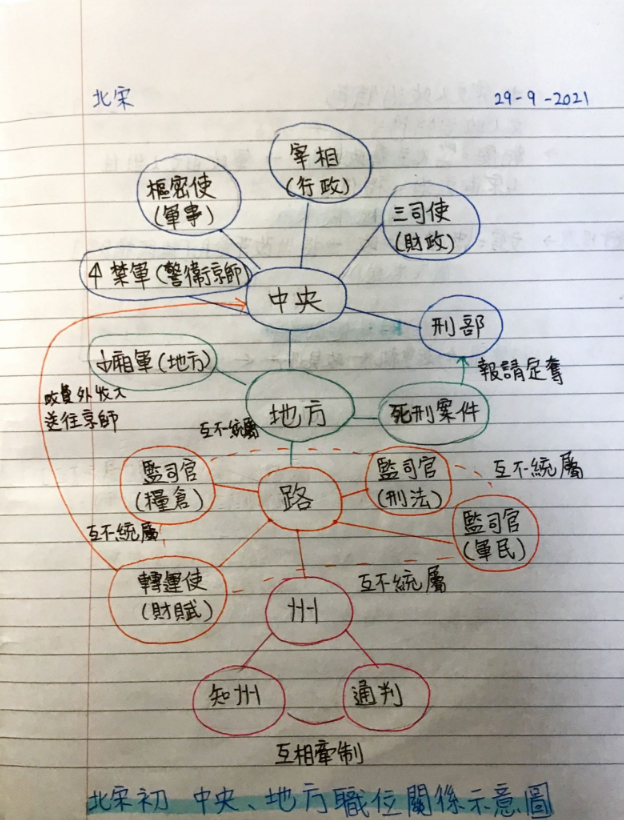 北宋
29-9-2021
宰相
(行政)
樞密使
(軍事)
三司使
(財政)
↑禁軍(警衛京師)
中央
刑部
↓廂軍(地方)
報請定奪
地方
死刑案件
外收入
送往京師
互不統屬
監司官
(糧倉)
路
監司官
(刑法)
互不統屬
監司官
(軍民)
互不統屬
轉運使
(財賦)
互不統屬
州
知州
通判
互相牽制
北宋初 中央、地方職位關係示意圖